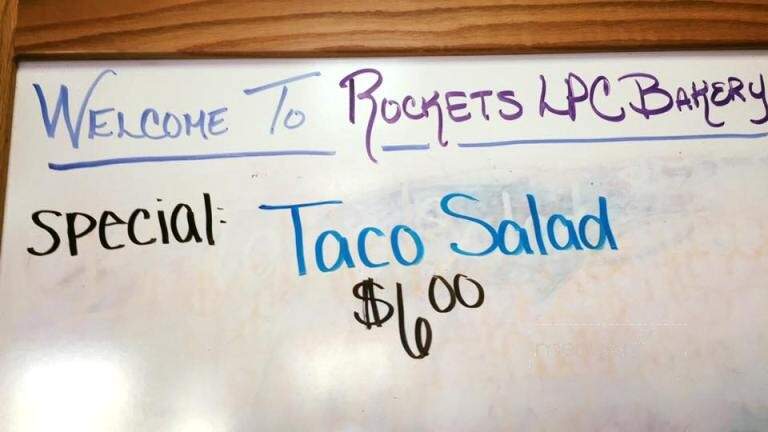 WELCOME TO ROCKETS LPC BAKERY
special: Taco Salad
$6.00